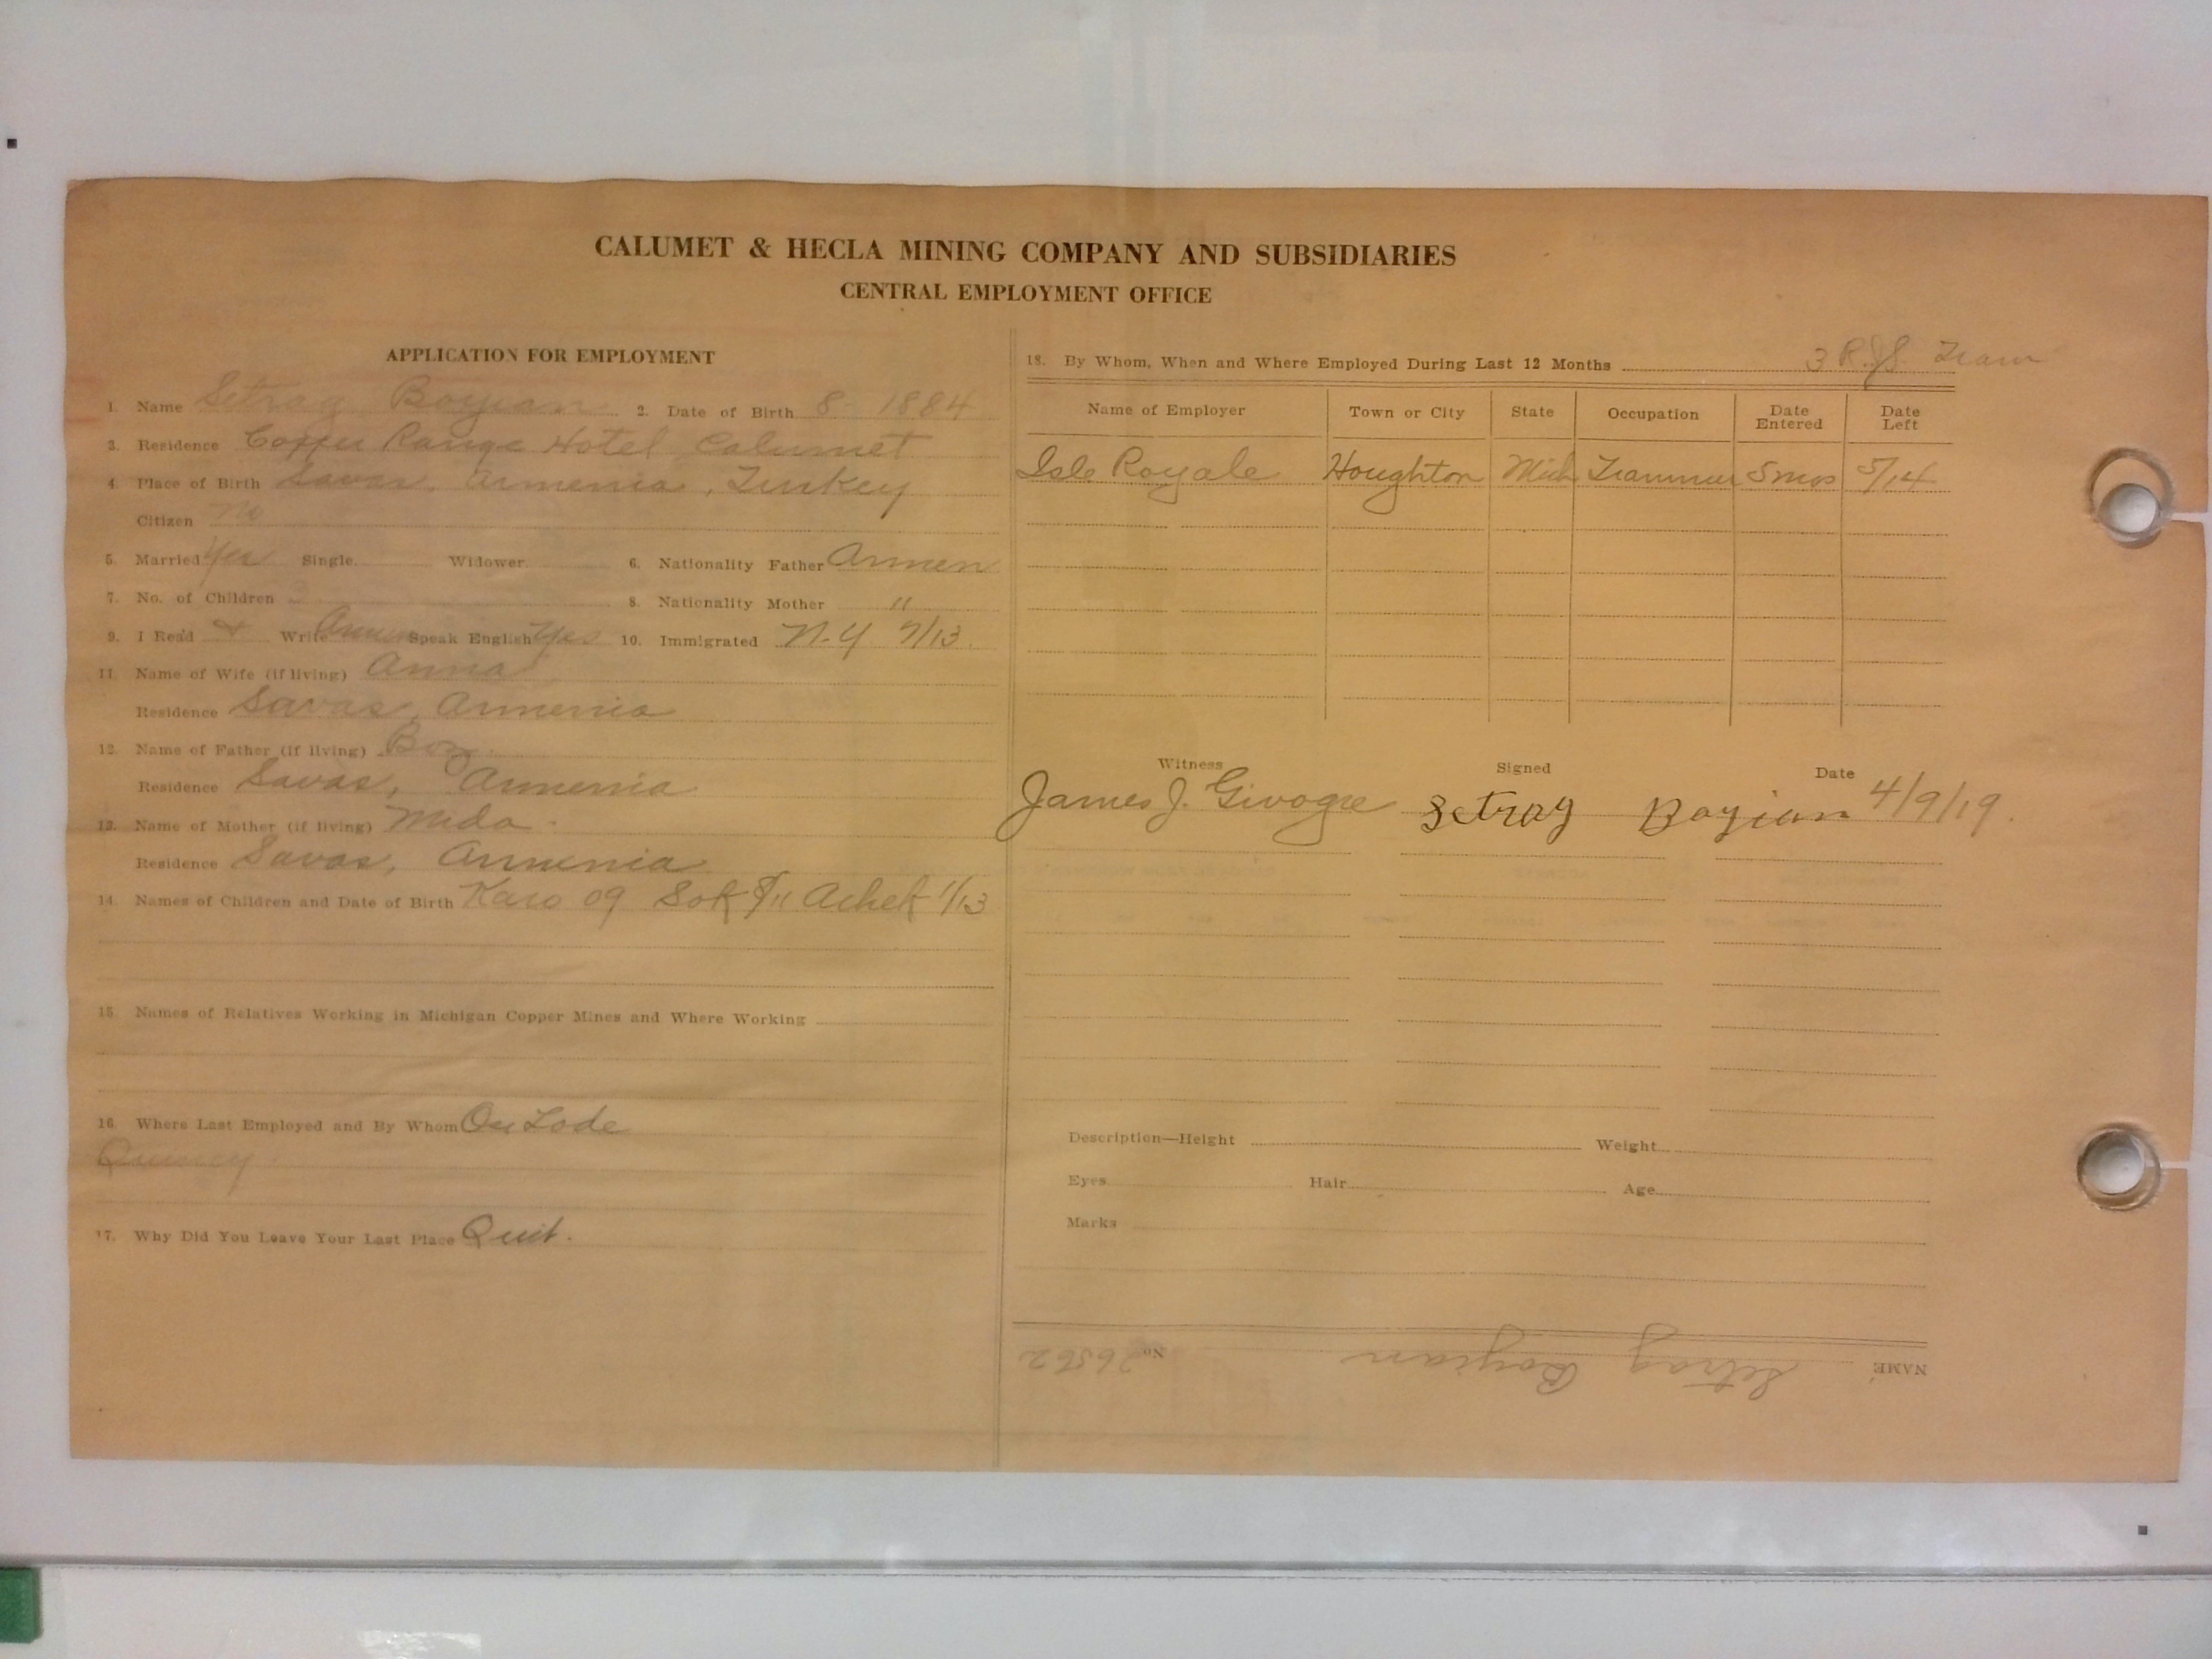 CALUMET & HECLA MINING COMPANY AND SUBSIDIARIES
CENTRAL EMPLOYMENT OFFICE
APPLICATION FOR EMPLOYMENT
1. Name Setrag Boyian 2. Date of Birth 8 1884
3. Residence Copper Range Hotel Calumet
4. Place of Birth Savas, Armenia, Turkey
Citizen No
5. Married Yes Single Widower 6. Nationality Father Armen
7. No. of Children 3 8. Nationality Mother "
9. I Read + Write Armen Speak English Yes 10. Immigrated N.Y. 7/13.
11. Name of Wife (if living) Anna
Residence Savas, Armenia
12. Name of Father (if living) Boy.
Residence Savas, Armenia
13. Name of Mother (if living) Mida.
Residence Savas, Armenia
14. Names of Children and Date of Birth Karo 09 Sok 8/11 Achek 1/13
15. Names of Relatives Working in Michigan Copper Mines and Where Working
16. Where Last Employed and By Whom Os Lode
Quincy.
17. Why Did You Leave Your Last Place Quit.
18. By Whom, When and Where Employed During Last 12 Months 3 R.J.S. Tram
Name of Employer Town or City State Occupation Date Entered Date Left
Isle Royale Houghton Mich Trammer 5 mos 5/14
Witness Signed Date
James J. Givogre Setrag Boyian 4/9/19.
Description—Height Weight
Eyes Hair Age
Marks
NAME Setrag Boyian No 26562